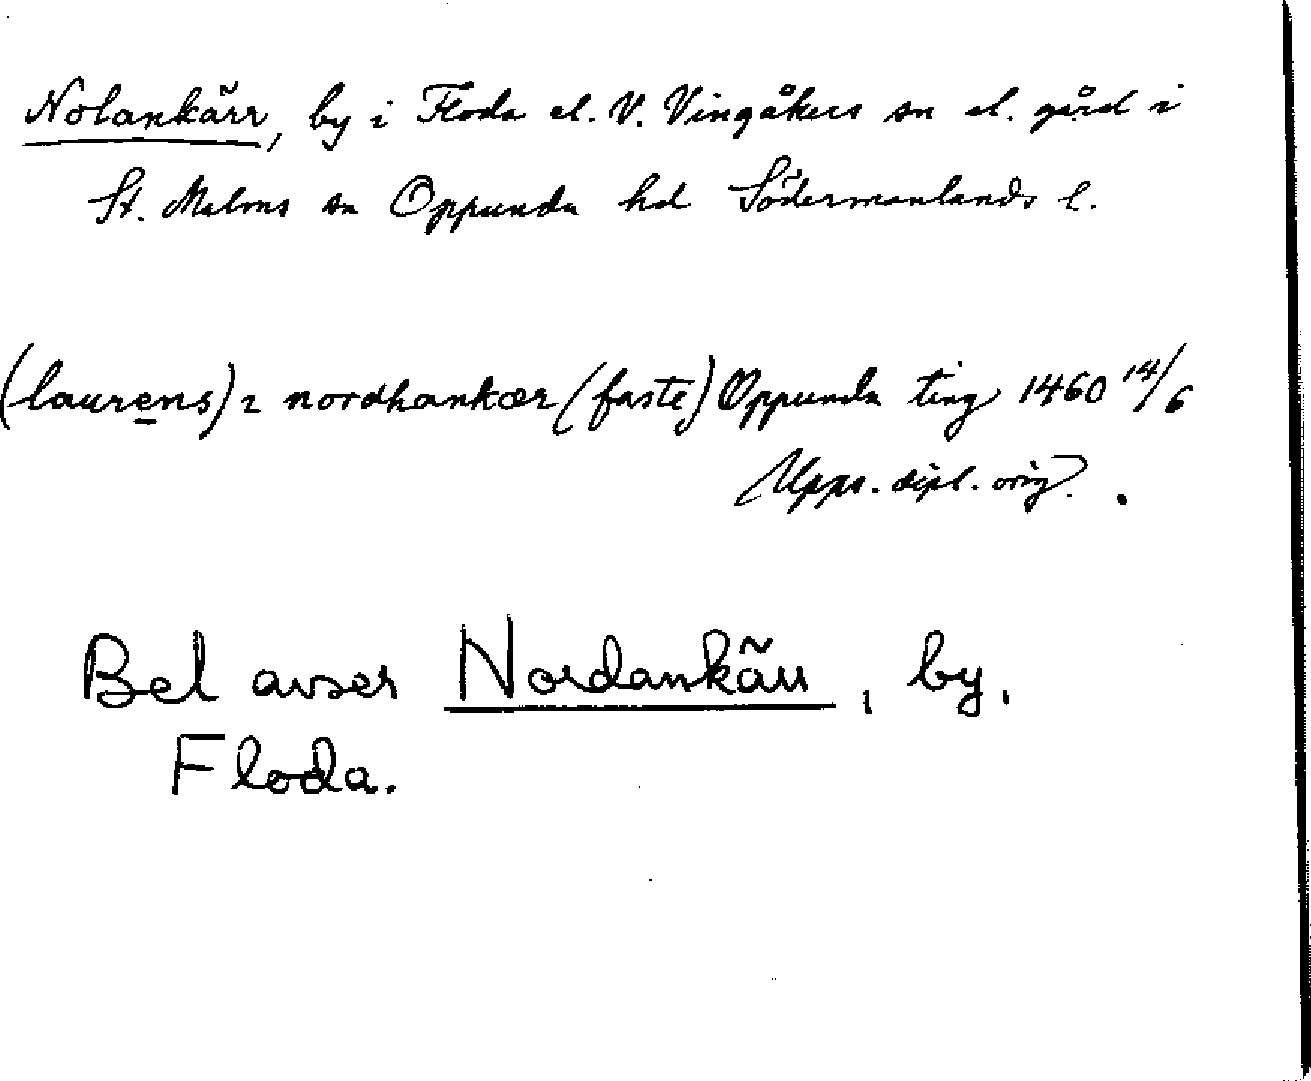 Nolankärr, by i Floda el. V. Vingåkers sn el. gård i
St. Malms sn Oppunda hd Södermanlands l.
(laurens) 2 nordhankær (faste) Oppunda ting 1460 14/6
Upps. dipl. orig.
Bel avser Nordankärr, by,
Floda.